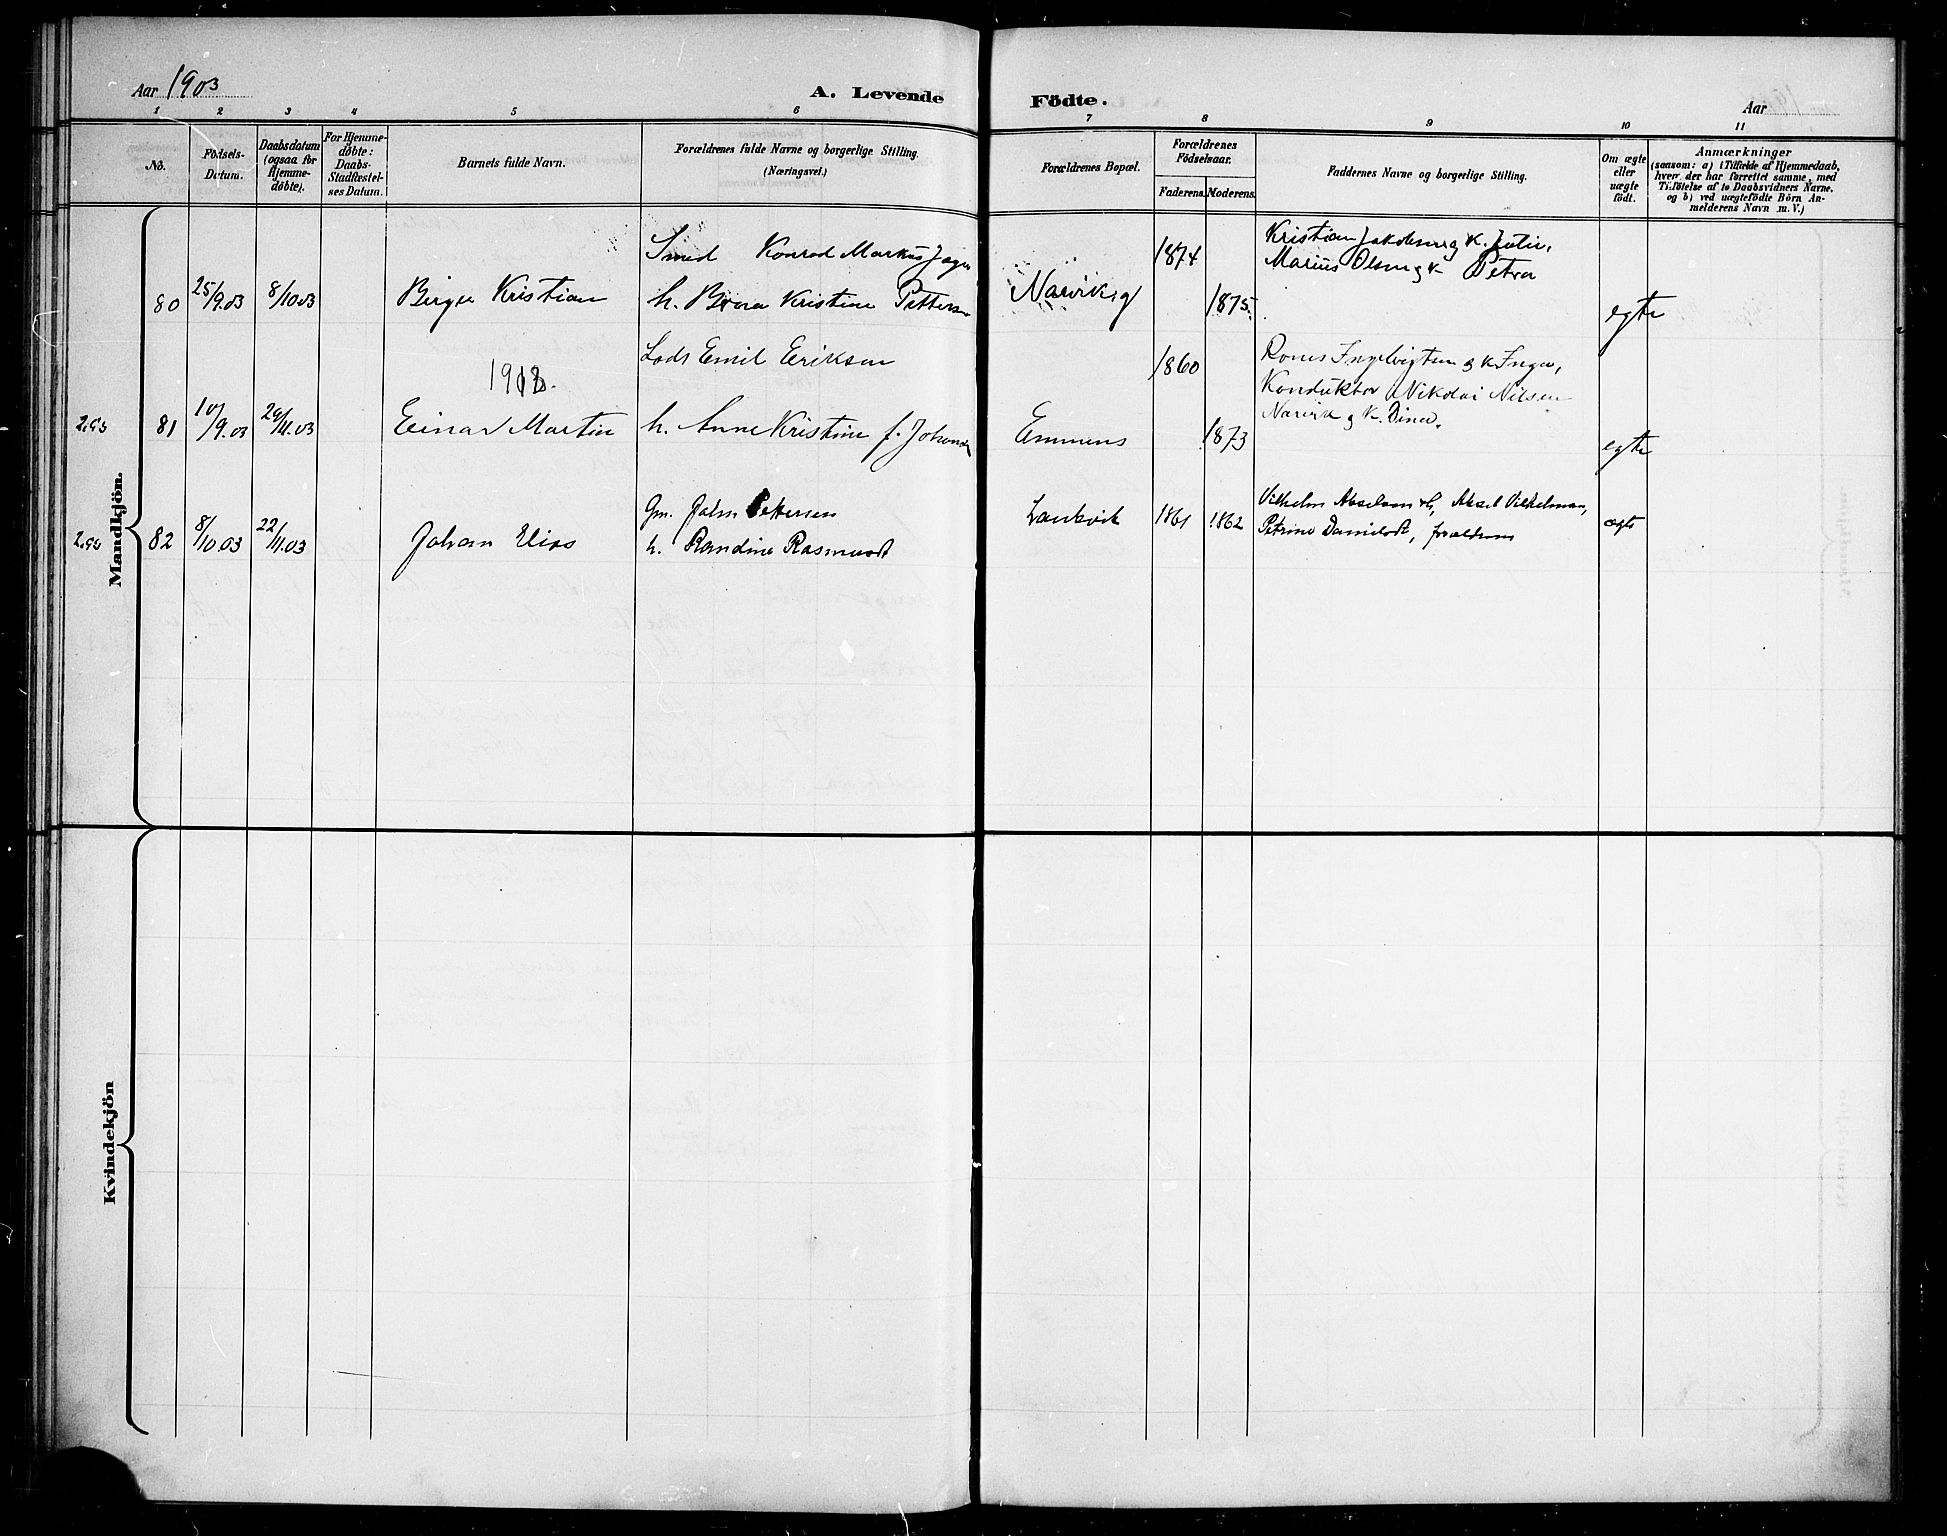 Aar 1903
A. Levende
Födte.
Aar
1 2 3 4 5 6 7 8 9 10 11
No.
Födsels-
Datum.
Daabsdatum
(ogsaa for
Hjemme-
døbte).
For Hjemme-
døbte:
Daabs-
Stadfæstel-
ses Datum.
Barnets fulde Navn.
Forældrenes fulde Navne og borgerlige Stilling.
(Næringsvei.)
Forældrenes Bopæl.
Forældrenes
Födselsaar.
Faderens. Moderens.
Faddernes Navne og borgerlige Stilling.
Om ægte
eller
uægte
födt.
Anmærkninger
(saasom: a) i Tilfælde af Hjemmedaab,
hvem der har forrettet samme, med
Tilföielse af to Daabsvidners Navne.
og b) ved uægtefödte Börn An-
melderens Navn m. V.)
Mandkjön.
80 25/9.03 8/10.03 Birger Kristian
Smed Konrad Markus
h. Kristine
Narvik
1874
1875
Kristian Jakobsen og K. Julie,
Marius Olsen og K Petra
egte
1918.
81 10/9.03 29/11.03 Einar Martin
Lods Emil Eriksen
h. Anne Kristine f.
Emmenes
1860
1873
Ingelvigtsen og K. Inga,
Konduktør Nikolai Nilsen
Narvik og K. Dina.
egte
82 8/10.03 22/11.03 Johan Elias
Gm. John Pettersen
h. Randine Rasmusdt
1861 1862
Vilhelm Akselsen & h, Aksel Vilhelmsen,
Petrine Danielsdt, forældrene
ægte
Kvindekjön